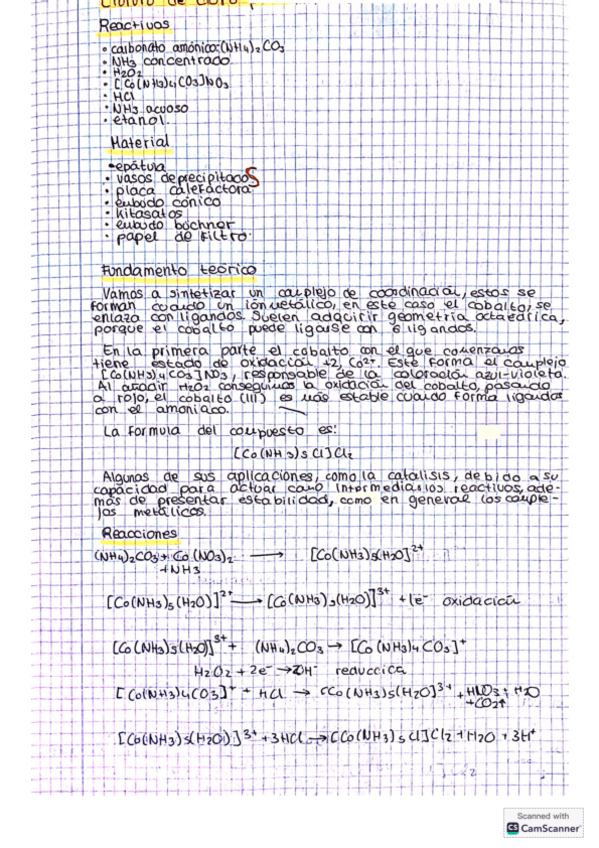 Reactivos
• carbonato amónico:(NH4)2CO3
• NH3 concentrado
• H2O2
• [Co(NH3)4CO3]NO3
• HCl
• NH3 acuoso
• etanol.
Material
• epátula
• vasos de precipitados
• placa calefactora
• eubudo cónico
• kitasatos
• eubudo büchner
• papel de filtro.
Fundamento teórico
Vamos a sintetizar un complejo de coordinación, estos se
forman cuando un ión metálico, en este caso el cobalto, se
enlaza con ligandos. Suelen adquirir geometría octaédrica,
porque el cobalto puede ligarse con 6 ligandos.
En la primera parte el cobalto con el que comenzamos
tiene estado de oxidación +2, Co2+. Este forma el complejo
[Co(NH3)4CO3]NO3, responsable de la coloración azul-violeta.
Al añadir H2O2 conseguimos la oxidación del cobalto, pasando
a rojo, el cobalto (III) es más estable cuando forma ligandos
con el amoniaco.
La fórmula del compuesto es:
[Co(NH3)5Cl]Cl2
Algunas de sus aplicaciones, como la catálisis, debido a su
capacidad para actuar como intermediarios reactivos, ade-
más de presentar estabilidad, como en general los comple-
jos metálicos.
Reacciones
(NH4)2CO3 + Co(NO3)2 → [Co(NH3)5(H2O)]2+
+NH3
[Co(NH3)5(H2O)]2+ → [Co(NH3)5(H2O)]3+ + 1e- oxidación
[Co(NH3)5(H2O)]3+ + (NH4)2CO3 → [Co(NH3)4CO3]+
H2O2 + 2e- → 2OH- reducción
[Co(NH3)4CO3]+ + HCl → [Co(NH3)5(H2O)]3+ + HNO3 + H2O
+CO2↑
[Co(NH3)5(H2O)]3+ + 3HCl → [Co(NH3)5Cl]Cl2 + H2O + 3H+
Scanned with
CS CamScanner